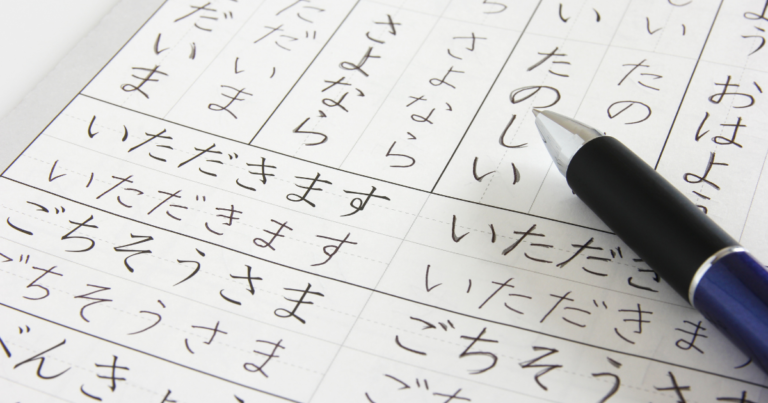 よう
おはよ
い
たの
い
たのしい
さよなら
さよなら
だいま
だいま
いただきます
いただきます
ごちそうさま
ごちそうさま
べんき
いただき
いただきま
ごちそうさ
ごち